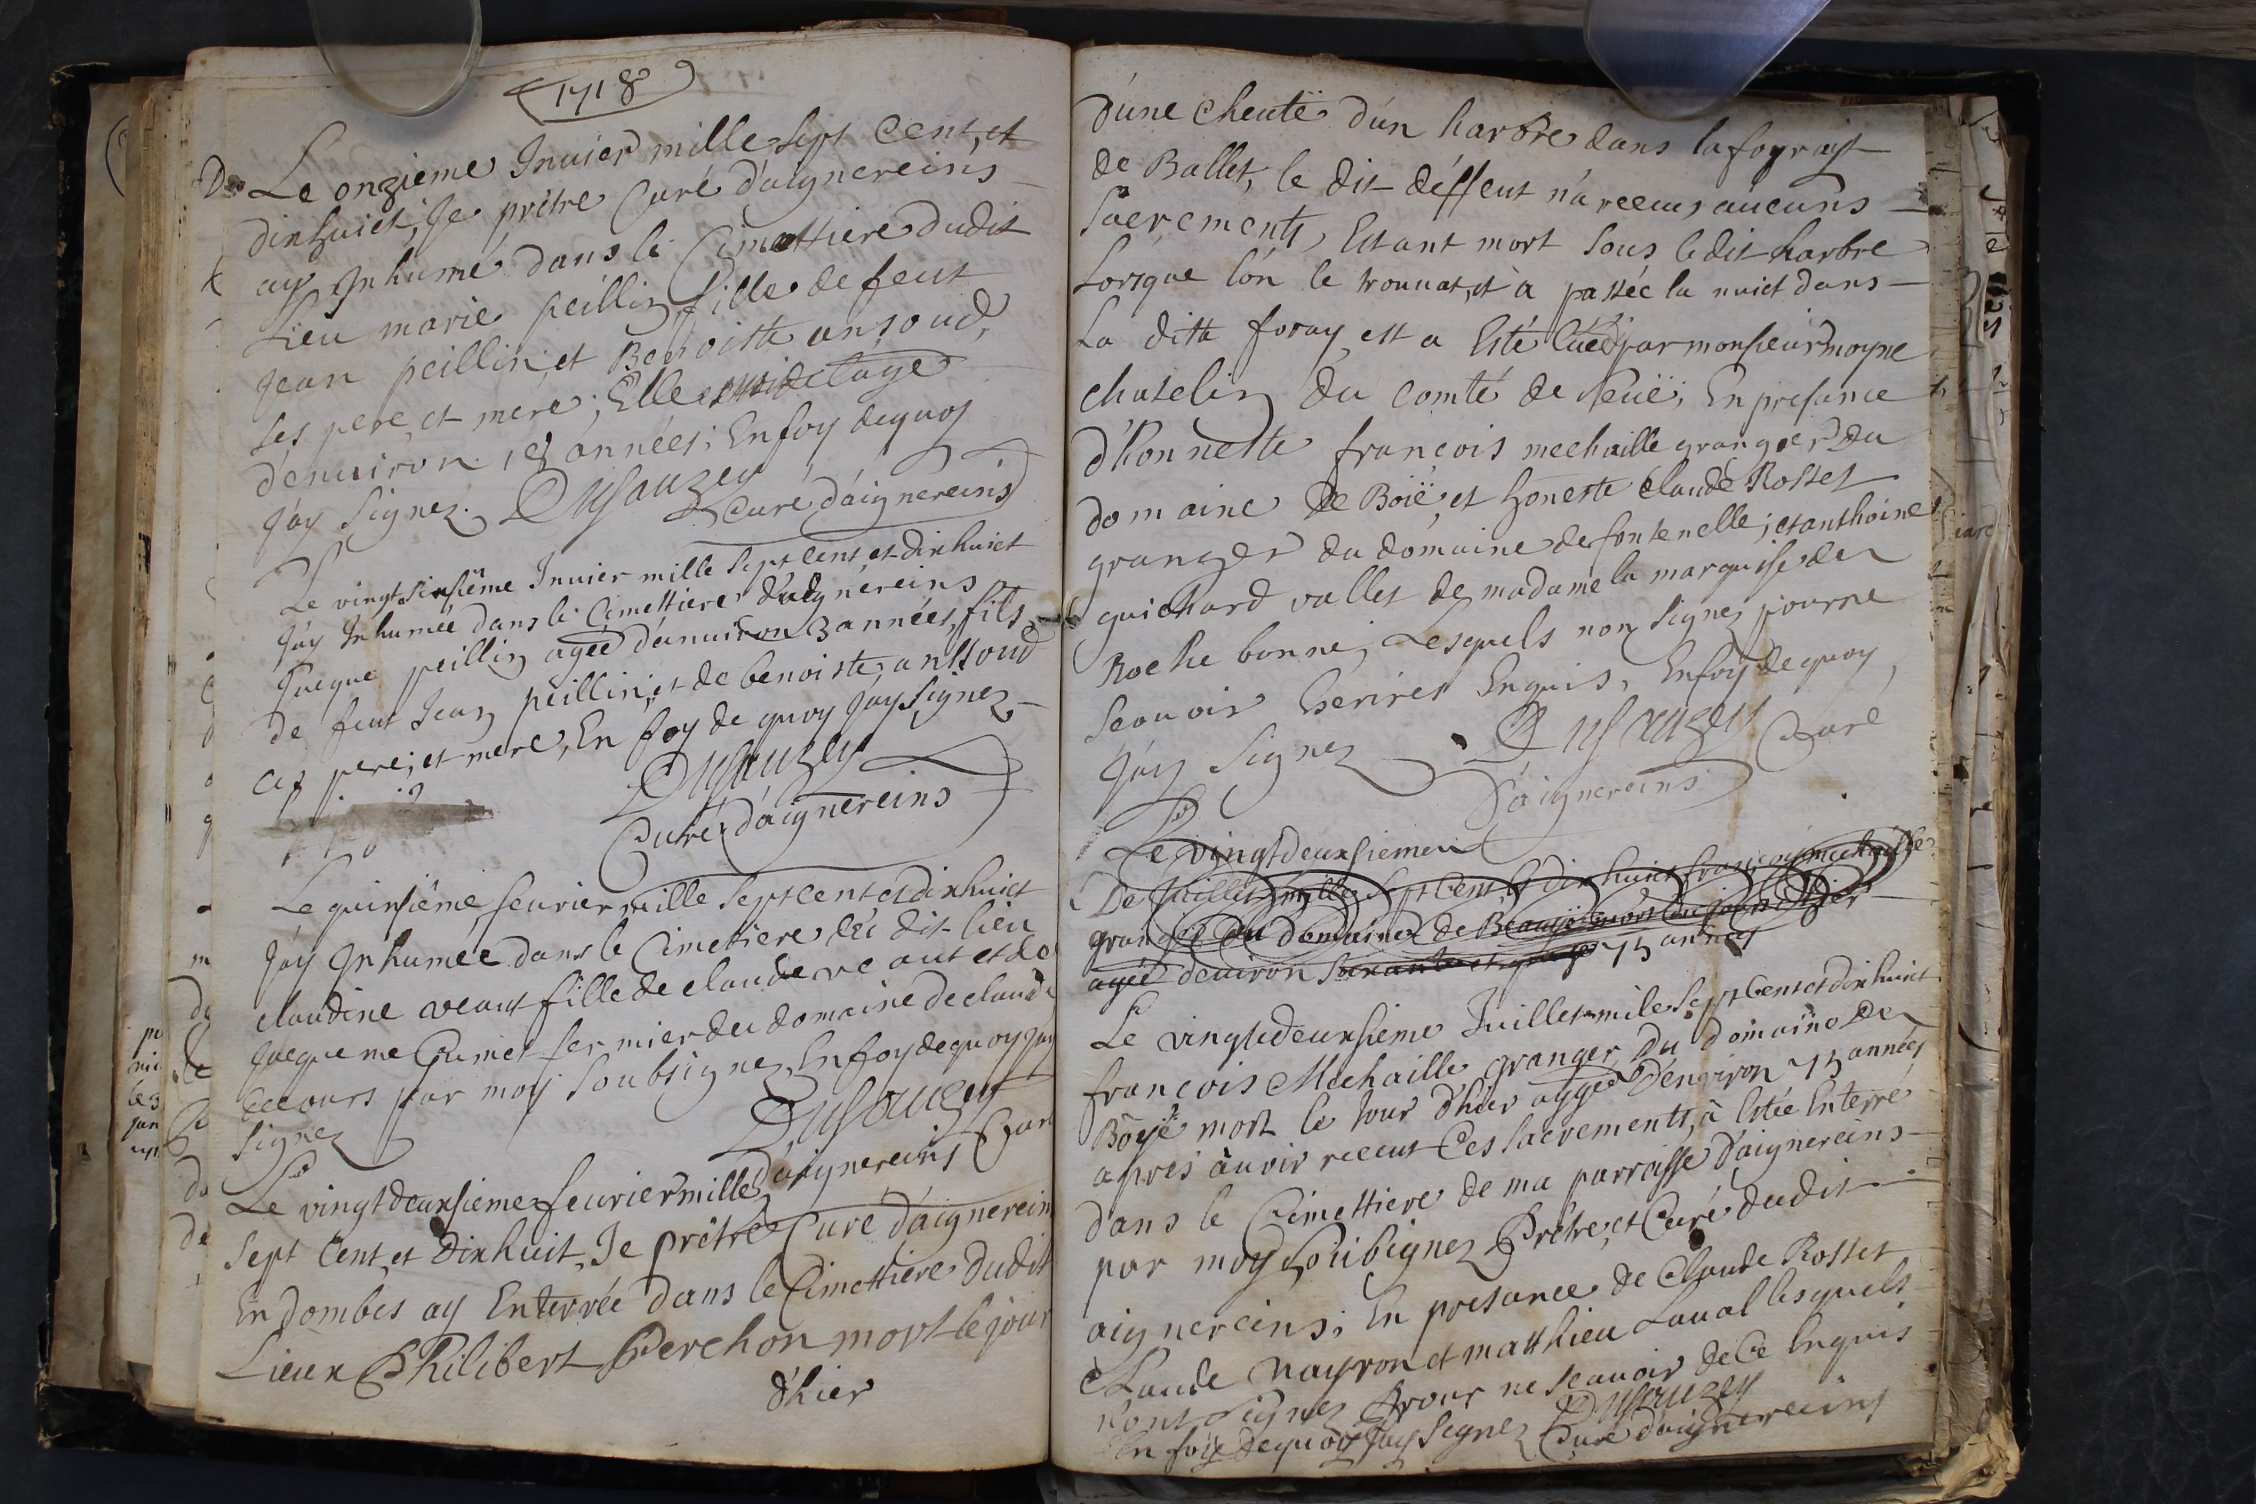 1718
Le onzieme Jnuier mille sept cent, et
dixhuict, Je prêtre Curé d'aignereins
ay Jnhumé dans le Cimettiere dudit
Lieu marie peillin fille de feut
Jean peillin, et Benoitte ansoud,
ses pere, et mere; Elle de l'age
d'enuiron années; Enfoy dequoy
J'ay Signez. Dusauzey
Curé d'aignereins
Le vingt sixsiême Jnuier mille Sept Cent et dixhuict
J'ay Jnhumée dans le Cimettiere d'aignéreins
Jacque peillin agée d'enuiron 3 années, fils
de feut Jean peillin, et de benoiste ansoud
ces pere, et mere, En foy de quoy J'ay Signez
Dusauzey
Curé d'aignereins
Le quinsiême feurier mille Sept Cent et dixhuict
J'ay Jnhumée dans le Cimetiere du dit lieu
claudine veaut fille de claude ve aut et de
Jacqueme Gumet fermier du domaine de claude
Decours par moy Soubsignez, Enfoy de quoy J'ay
Signez Dusauzey
d'aignereins Curé
Le vingt deuxsieme feurier mille
Sept Cent, et dixhuit, Je prêtre Curé d'aignereins
En dombes ay Enterrée dans le Cimettiere dudit
Lieux Philibert Perchon mort le jour
d'hier
d'une cheute d'un harbre dans la
de Ballet, le dit déffeut n'a receus aucuns
Sacrements, Estant mort Sous le dit harbre
Lorsque l'ón le trouuat, et à passée la nuict dans
La ditte foray, est a Esté par monsieur moyne
chatelin du comté de ; En presance
d'honneste françois mechaille granger du
domaine de Boïë, et honeste Claude Rosset
granger du domaine de fontenelle; et anthoine
guichard vallet de madame la marquise de
Roche bonne, Lesquels non Signez pour ne
Scauoir Escrires Enquis, Enfoy de quoy,
J'ay Signez Dusauzey Curé
D'aignereins
Le vingt deuxsiemen
De Juillet mille Sept Cent, et dixhuict françois mechaille
granger du domaine de mort du jours d'hier
agée denuiron 75 années
Le vingt deuxsieme Juillet mile Sept Cent et dixhuict
françois Mechaille granger du domaine de
Bôyë mort le Jour d'hier aggé d'environ 75 années
apres auvoir receut Ces Sacrements, à Estée Enterré
dans le Cimettiere de ma parroisse d'aignereins
par moy Prêtre, et Curé dudit
aignereins, En presance de Claude Rosset
Claude Nayron et matthieu Laual lesquels
nont Signez Prour ne Scauoir de Ce Enquis
En foy Dequoy J'ay Signez Dusauzey
Curé d'aignereins